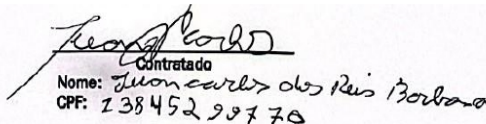 Contratado
Nome: Juoncarlos dos Reis Barbosa
CPF: 13845299770